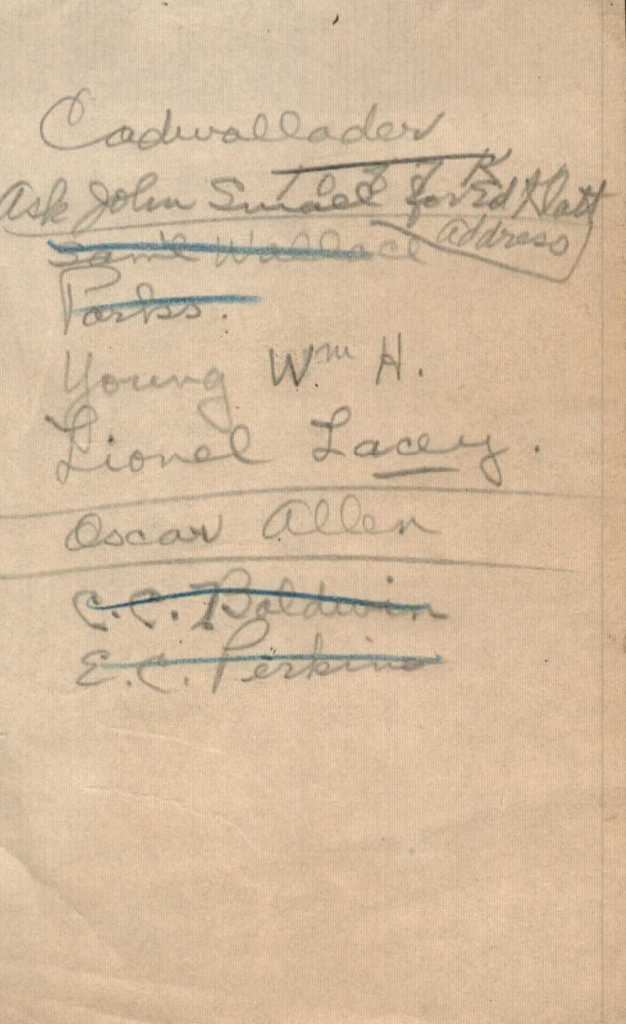 Cadwallader
Ask John for Ed Platt
address
Sam'l Wallace
Parks.
Young Wm H.
Lionel Lacey.
Oscar Allen
C. C. Baldwin
E. C. Perkins